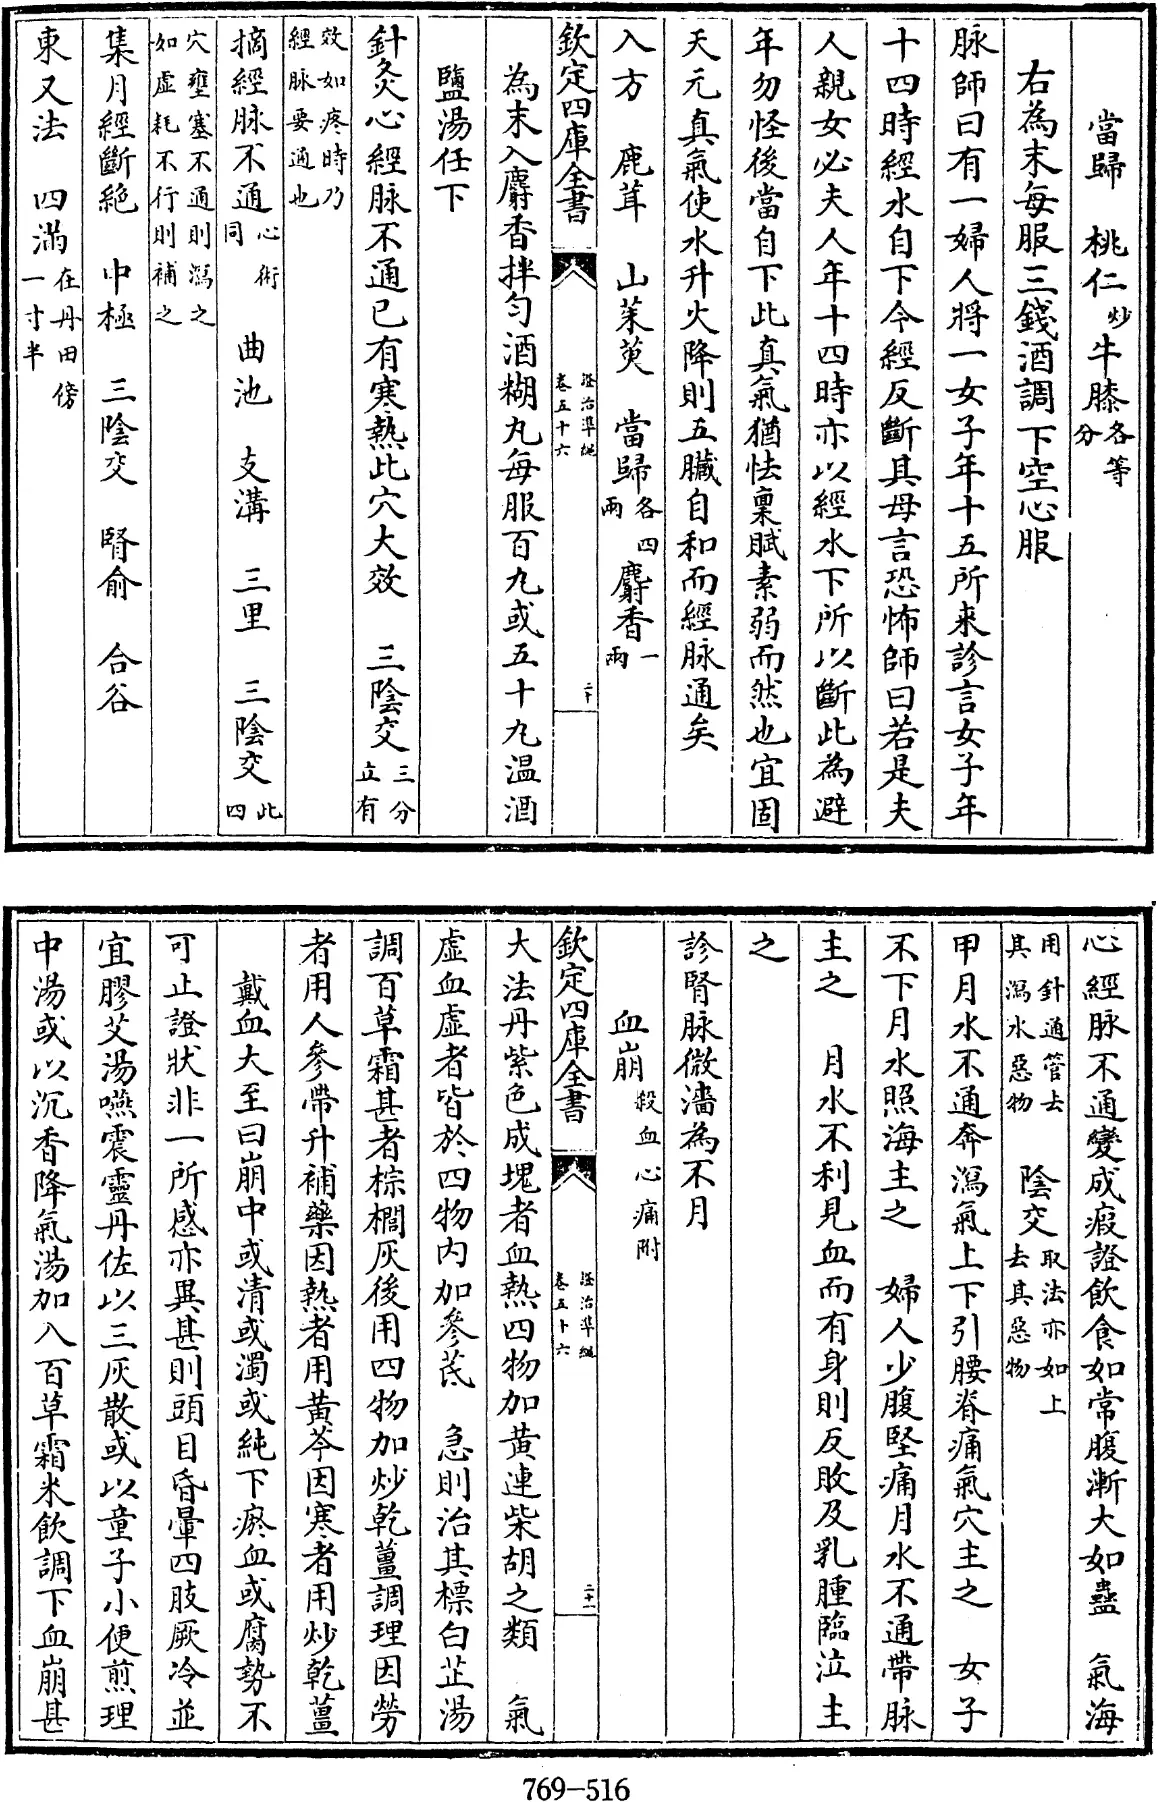 當歸　桃仁炒牛膝各等分
右為末每服三錢酒調下空心服
脉師曰有一婦人將一女子年十五所来診言女子年
十四時經水自下今經反斷其母言恐怖師曰若是夫
人親女必夫人年十四時亦以經水下所以斷此為避
年勿怪後當自下此真氣猶怯稟賦素弱而然也宜固
天元真氣使水升火降則五臟自和而經脉通矣
入方　鹿茸　山茱萸　當歸各四兩麝香一兩
欽定四庫全書　證治準繩卷五十六　二十
為末入麝香拌勻酒糊丸每服百九或五十九温酒
鹽湯任下
針灸心經脉不通已有寒熱此穴大效　三陰交三分立有
效如疼時乃經脉要通也
摘經脉不通心術同　曲池　支溝　三里　三陰交此四
穴壅塞不通則瀉之如虚耗不行則補之
集月經斷絶　中極　三陰交　腎俞　合谷
東又法　四滿在丹田傍一寸半
心經脉不通變成瘕證飲食如常腹漸大如蠱　氣海
用針通管去其瀉水惡物　陰交取法亦如上去其惡物
甲月水不通奔瀉氣上下引腰脊痛氣穴主之　女子
不下月水照海主之　婦人少腹堅痛月水不通帶脉
主之　月水不利見血而有身則反敗及乳腫臨泣主
之
診腎脉微濇為不月
血崩殺血心痛附
欽定四庫全書　證治準繩卷五十六　二十一
大法丹紫色成塊者血熱四物加黄連柴胡之類　氣
虚血虚者皆於四物内加參茋　急則治其標白芷湯
調百草霜甚者棕櫚灰後用四物加炒乾薑調理因勞
者用人參帶升補藥因熱者用黄芩因寒者用炒乾薑
戴血大至曰崩中或清或濁或純下瘀血或腐勢不
可止證狀非一所感亦異甚則頭目昏暈四肢厥冷並
宜膠艾湯嚥震靈丹佐以三灰散或以童子小便煎理
中湯或以沉香降氣湯加入百草霜米飲調下血崩甚
769-516